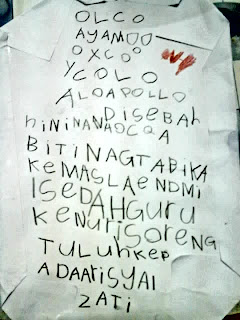 OLCO
AYAMOO
OXCOO
YCOLO
ALOAPOLLO
DISEBAH
hiNiNANAOCQA
BITINAGTABIKA
KeMASLAENDMI
ISEDAHGURU
KENURISORENG
TULUHKEP
ADAATISYAI
ZATI